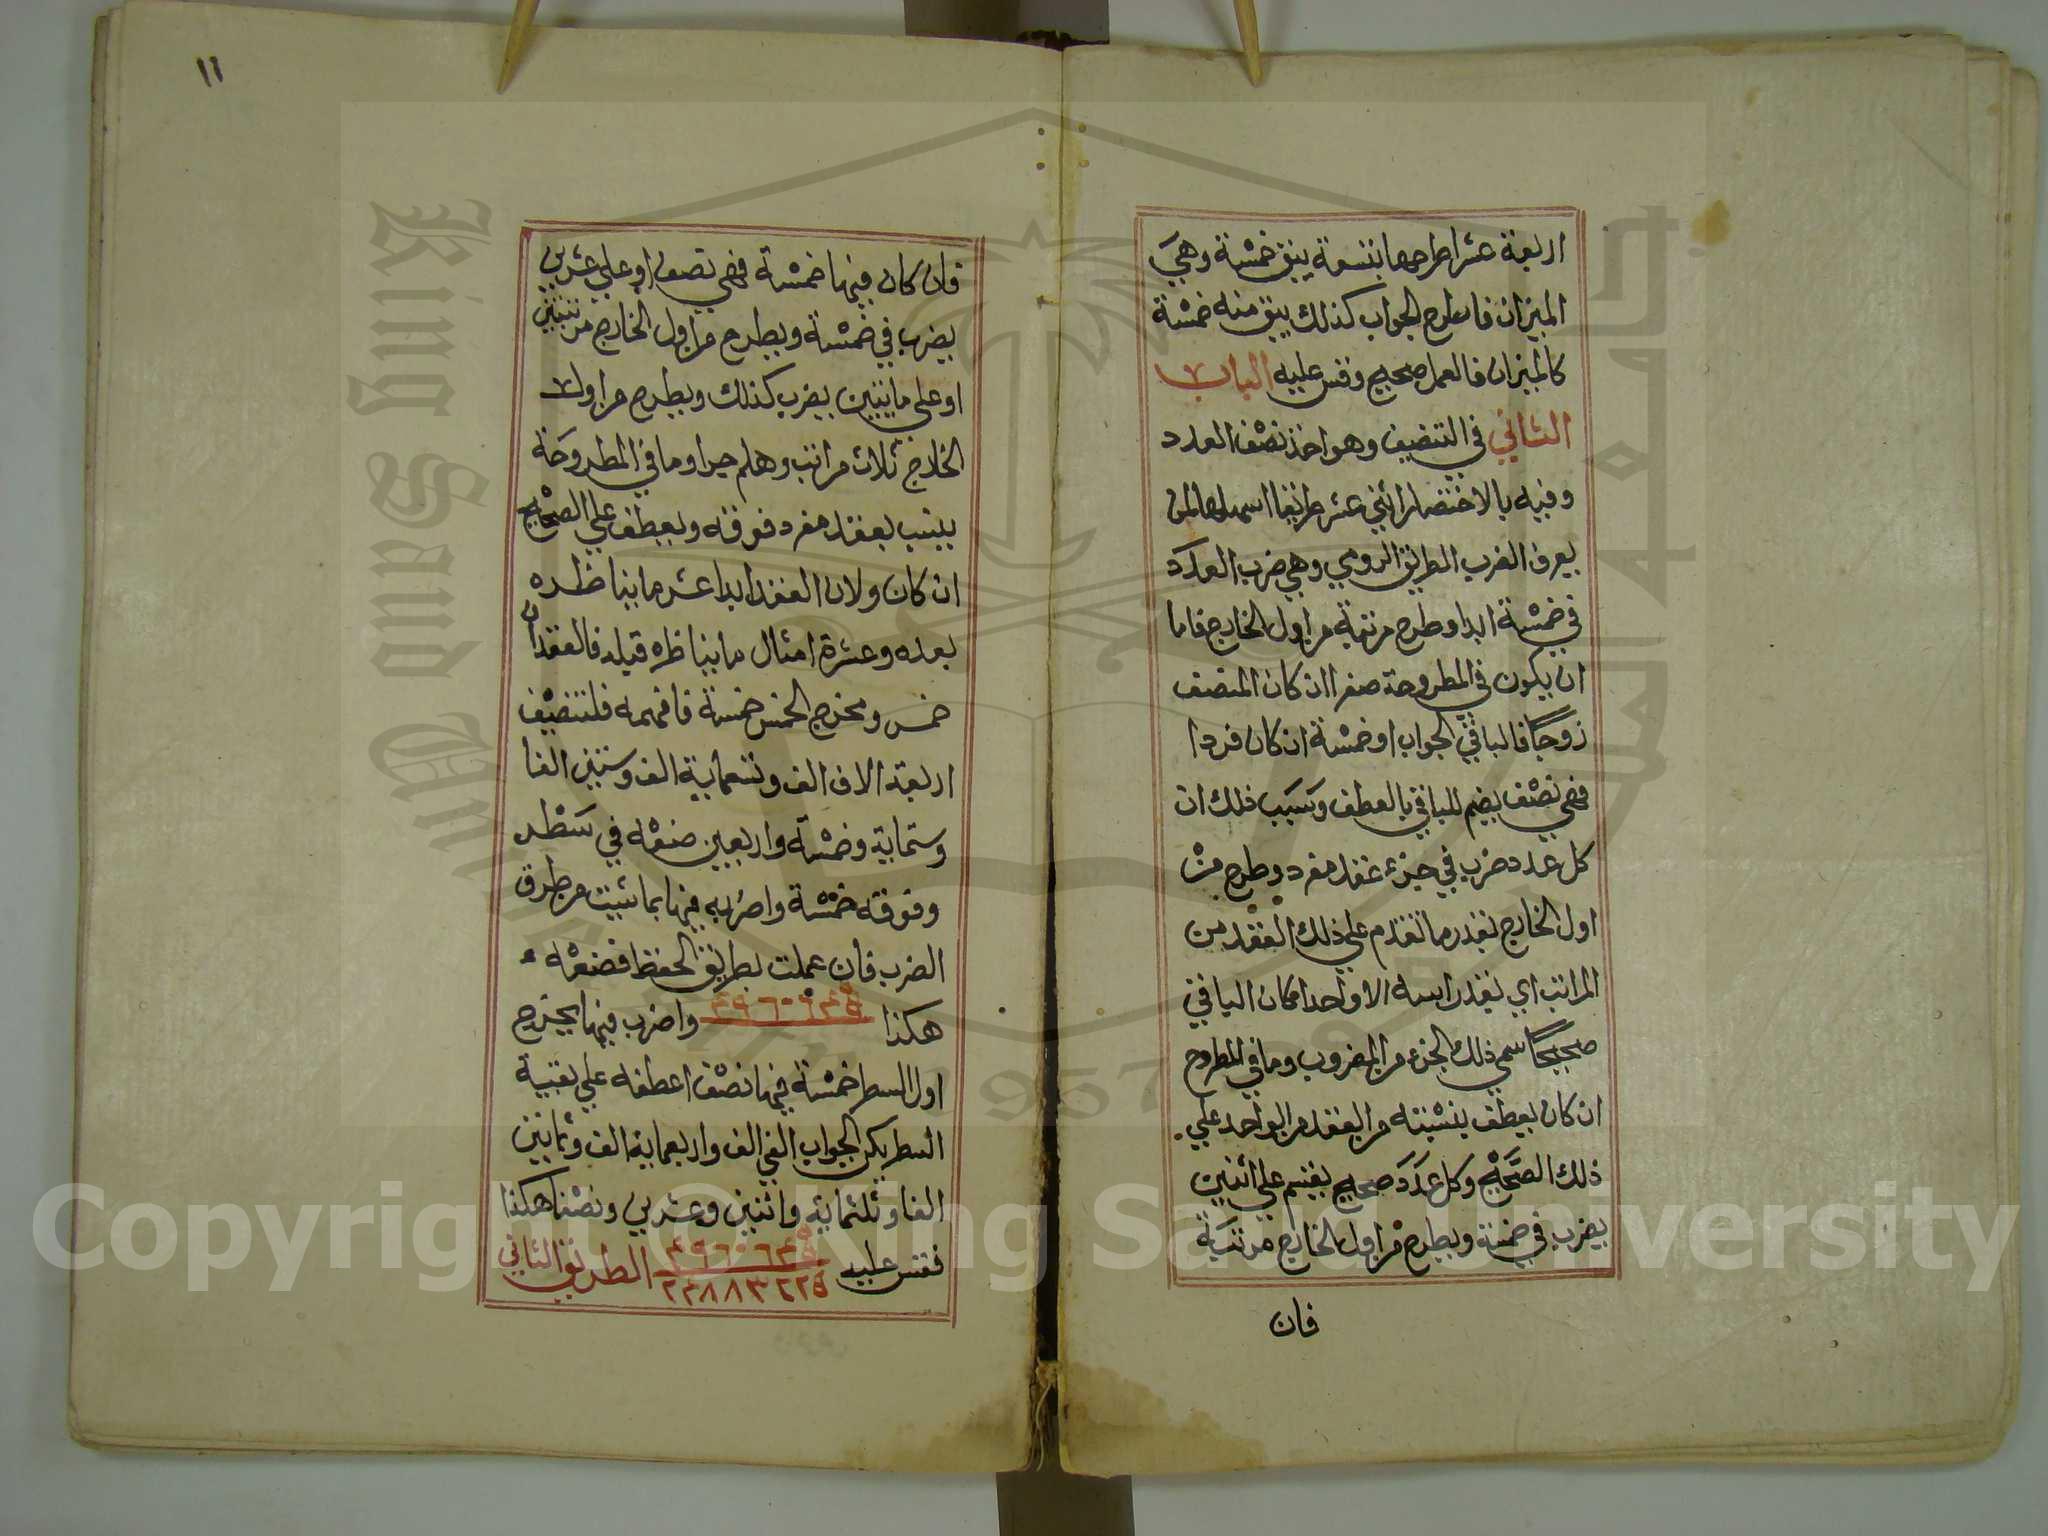 اربعة عشر اطرحها بتسعة يبق خمسة وهي
الميزان فاطرح الجواب كذلك يبق منه خمسة
كالميزان فالعمل صحيح وقس عليه الباب
الثاني في التنصيف وهو اخذ نصف العدد
وفيه بالاختصار اثني عشر طريقا اسهلها لمن
يعرف الضرب الطريق الرومي وهي ضرب العدد
في خمسة ابدا وطرح مرتبة من اول الخارج فاما
ان يكون في المطروحة صفرا ان كان المنصف
زوجًا فالباقي الجواب او خمسة ان كان فردا
فهي نصف يضم للباقي بالعطف وسبب ذلك ان
كل عدد ضرب في جزء عقد مفرد وطرح من
اول الخارج بقدر ما تقدم علي ذلك العقد من
المراتب اي بقدر اسه الا واحدا كان الباقي
صحيحًا سمي ذلك الجزء من المضروب وما في المطروح
ان كان يعطف بنسبته من العقد من الواحد علي
ذلك الصحيح وكل عدد صحيح يقسم علي اثنين
يضرب في خمسة ويطرح من اول الخارج مرتبة
فان
١١
فان كان فيها خمسة فهي نصف او علي عشرين
يضرب في خمسة ويطرح من اول الخارج مرتبتين
او علي مايتين يضرب كذلك ويطرح من اول
الخارج ثلاث مراتب وهلم جرا وما في المطروحة
ينسب بعقد مفرد فوقه ويعطف علي الصحيح
ان كان ولان العقد ابدا عشر ما يناظره
بعده وعشرة امثال ما يناظره قبله فالعقد ان
خمس ومخرج الخمس خمسة فافهمه فلتنصيف
اربعة الاف الف وتسعماية الف وستين الفا
وستماية وخمسة واربعين ضعه في سطر
وفوقه خمسة واضربه فيها بما شيت من طرق
الضرب فان عملت بطريق الحفظ فضعه
هكذا ٤٩٦٠٦٤٥ واضرب فيها يخرج
اول السطر خمسة فيها نصف اعطفه علي بقية
السطر يكن الجواب الفي الف واربعماية الف وثمانين
الفا وثلثماية واثنين وعشرين ونصفا هكذا
فقس عليه ٤٩٦٠٦٤٥ الطريق الثاني
Copyright © King Saud University
King Saud University
1957